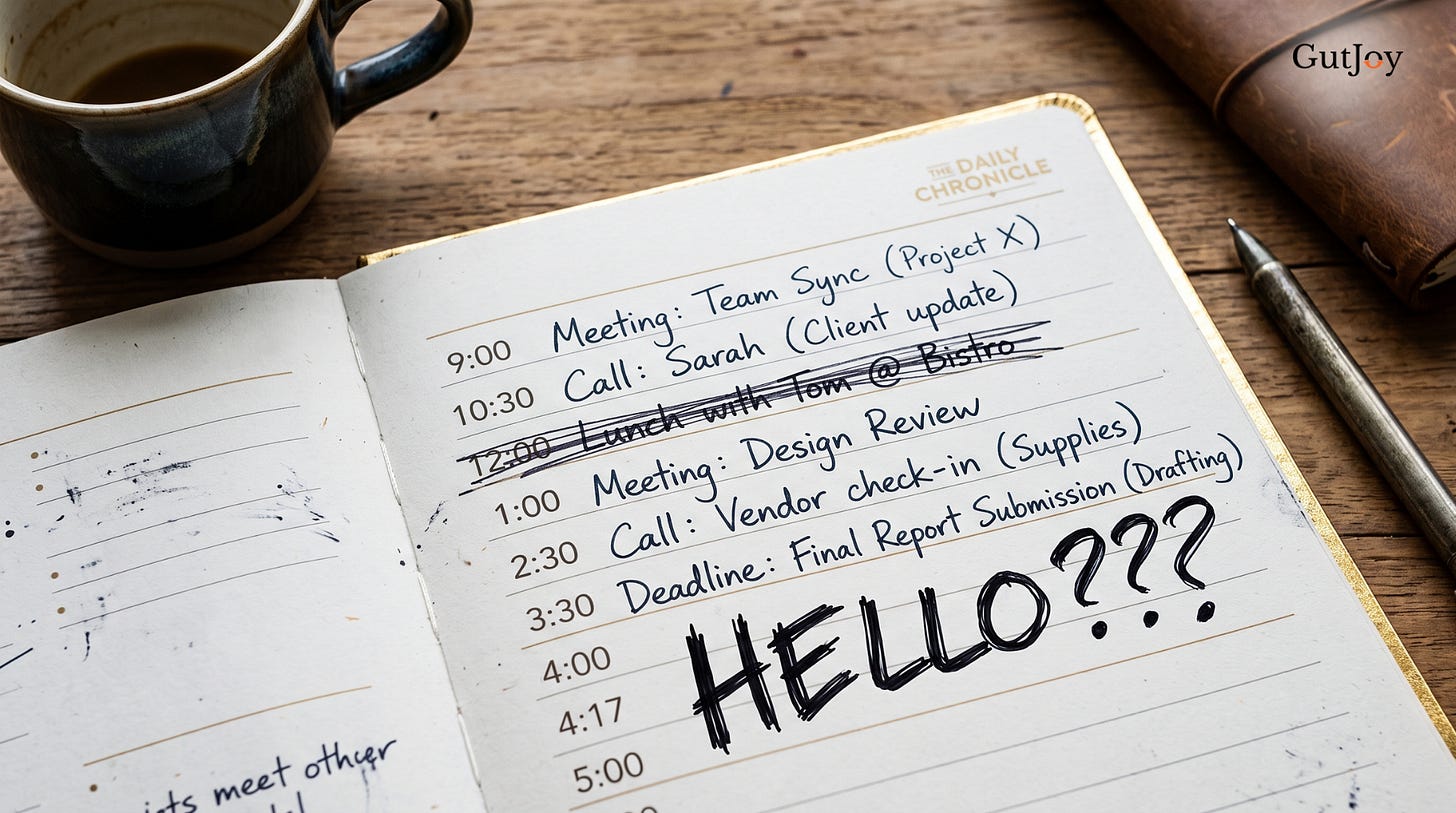 GutJoy
THE DAILY
CHRONICLE
9:00 Meeting: Team Sync (Project X)
10:30 Call: Sarah (Client update)
12:00 Lunch with Tom @ Bistro
1:00 Meeting: Design Review
2:30 Call: Vendor check-in (Supplies)
3:30 Deadline: Final Report Submission (Drafting)
4:00
4:17 HELLO???
5:00
meet